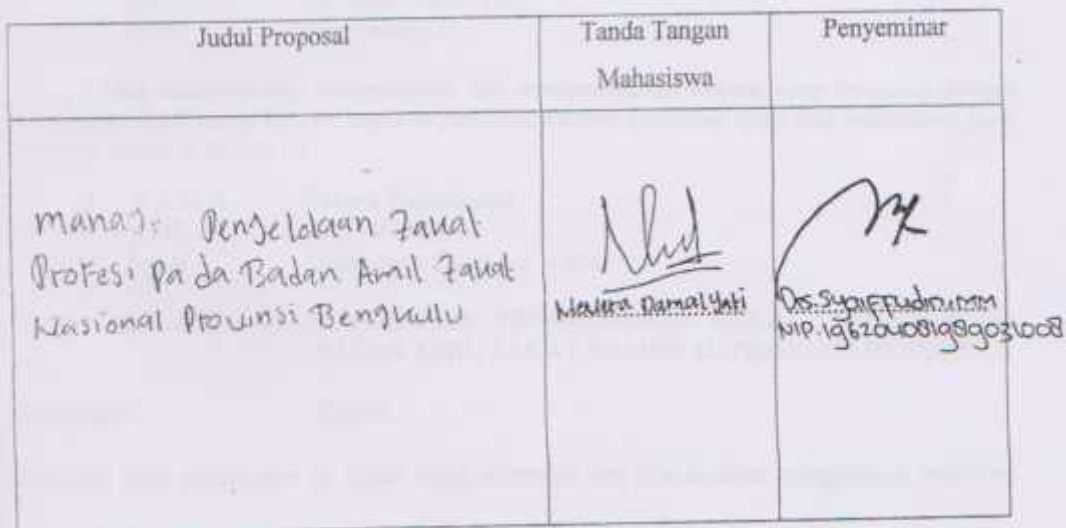 Judul Proposal
Tanda Tangan
Mahasiswa
Penyeminar
Pengelolaan Zakat
Profesi Pada Badan Amil Zakat
Nasional Provinsi Bengkulu
Damalyati
Drs. Syaiffudin.MM
NIP.196204081989031008